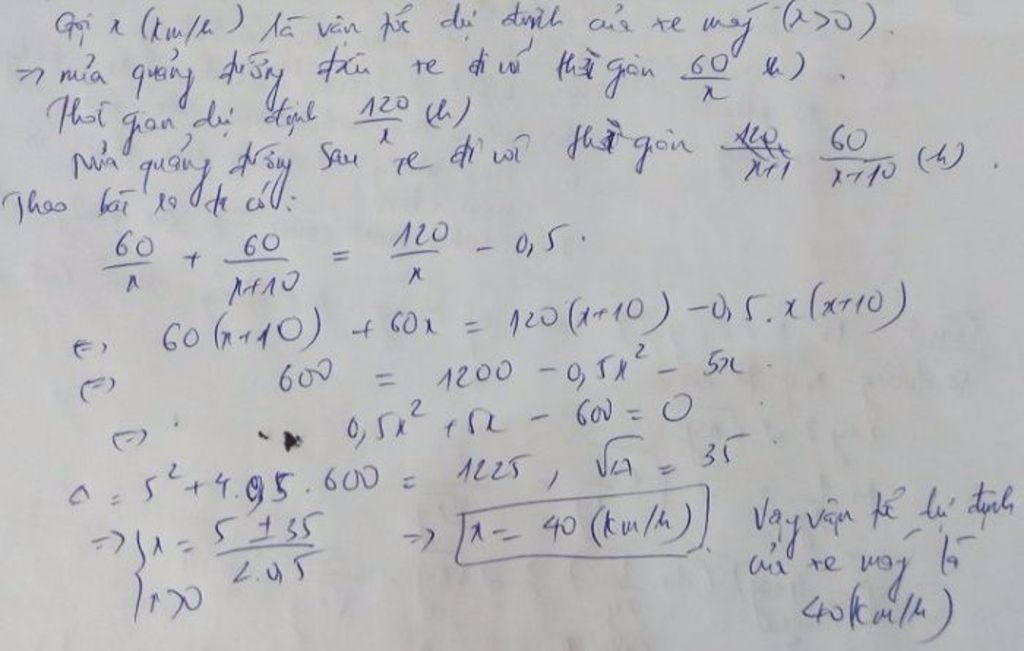 Gọi x (km/h) là vận tốc dự định của xe máy (x>0).
=> nửa quảng đường đầu xe đi với thời gian 60/x (h).
Thời gian dự định 120/x (h)
Nửa quảng đường sau xe đi với thời gian 60/(x+10) (h).
Theo bài ra ta có:
60/x + 60/(x+10) = 120/x - 0,5.
<=> 60(x+10) + 60x = 120(x+10) - 0,5.x(x+10)
<=> 600 = 1200 - 0,5x² - 5x
<=> 0,5x² + 5x - 600 = 0
Δ = 5² + 4.0,5.600 = 1225, √Δ = 35
=> { x = (5 ± 35)/(2.0,5) => x = 40 (km/h).
x>0
Vậy vận tốc dự định
của xe máy là
40(km/h)